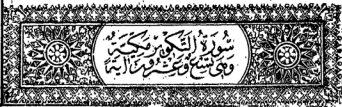 سورة التكوير مكية
وهي تسع وعشرون اية